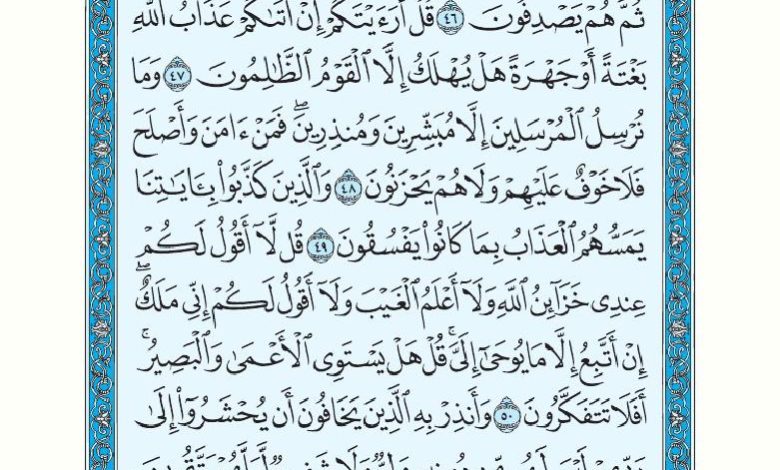 ثُمَّ هُمْ يَصْدِفُونَ ٤٦ قُلْ أَرَءَيْتَكُمْ إِنْ أَتَىٰكُمْ عَذَابُ ٱللَّهِ
بَغْتَةً أَوْ جَهْرَةً هَلْ يُهْلَكُ إِلَّا ٱلْقَوْمُ ٱلظَّٰلِمُونَ ٤٧ وَمَا
نُرْسِلُ ٱلْمُرْسَلِينَ إِلَّا مُبَشِّرِينَ وَمُنذِرِينَۖ فَمَنْ ءَامَنَ وَأَصْلَحَ
فَلَا خَوْفٌ عَلَيْهِمْ وَلَا هُمْ يَحْزَنُونَ ٤٨ وَٱلَّذِينَ كَذَّبُوا۟ بِـَٔايَٰتِنَا
يَمَسُّهُمُ ٱلْعَذَابُ بِمَا كَانُوا۟ يَفْسُقُونَ ٤٩ قُل لَّآ أَقُولُ لَكُمْ
عِندِى خَزَآئِنُ ٱللَّهِ وَلَآ أَعْلَمُ ٱلْغَيْبَ وَلَآ أَقُولُ لَكُمْ إِنِّى مَلَكٌۖ
إِنْ أَتَّبِعُ إِلَّا مَا يُوحَىٰٓ إِلَىَّۚ قُلْ هَلْ يَسْتَوِى ٱلْأَعْمَىٰ وَٱلْبَصِيرُۚ
أَفَلَا تَتَفَكَّرُونَ ٥٠ وَأَنذِرْ بِهِ ٱلَّذِينَ يَخَافُونَ أَن يُحْشَرُوٓا۟ إِلَىٰ